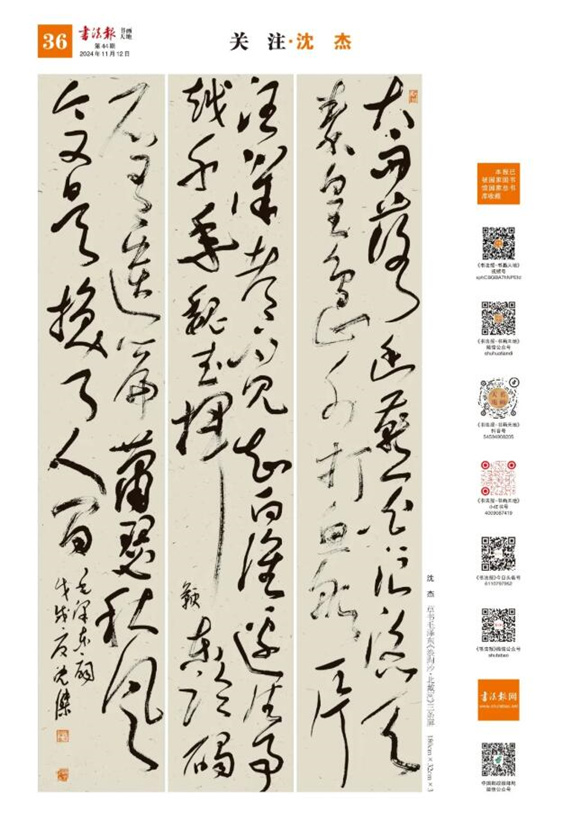 36
书法报 书画天地
第44期
2024年11月12日
关 注·沈 杰
大雨落幽燕白浪滔天
秦皇岛外打鱼船一片
汪洋都不见知向谁边往事
越千年魏武挥鞭东临碣
石有遗篇萧瑟秋风
今又是换了人间
毛泽东词
戊戌 沈傑
沈 杰 草书毛泽东《浪淘沙·北戴河》三条屏 180cm×32cm×3
本报已
被国家图书
馆国家总书
库收藏
《书法报·书画天地》
视频号
《书法报·书画天地》
微信公众号
shuhuatiandi
《书法报·书画天地》
抖音号
《书法报·书画天地》
小红书号
《书法报》今日头条号
《书法报》微信公众号
shufabao
书法报网
微信公众号